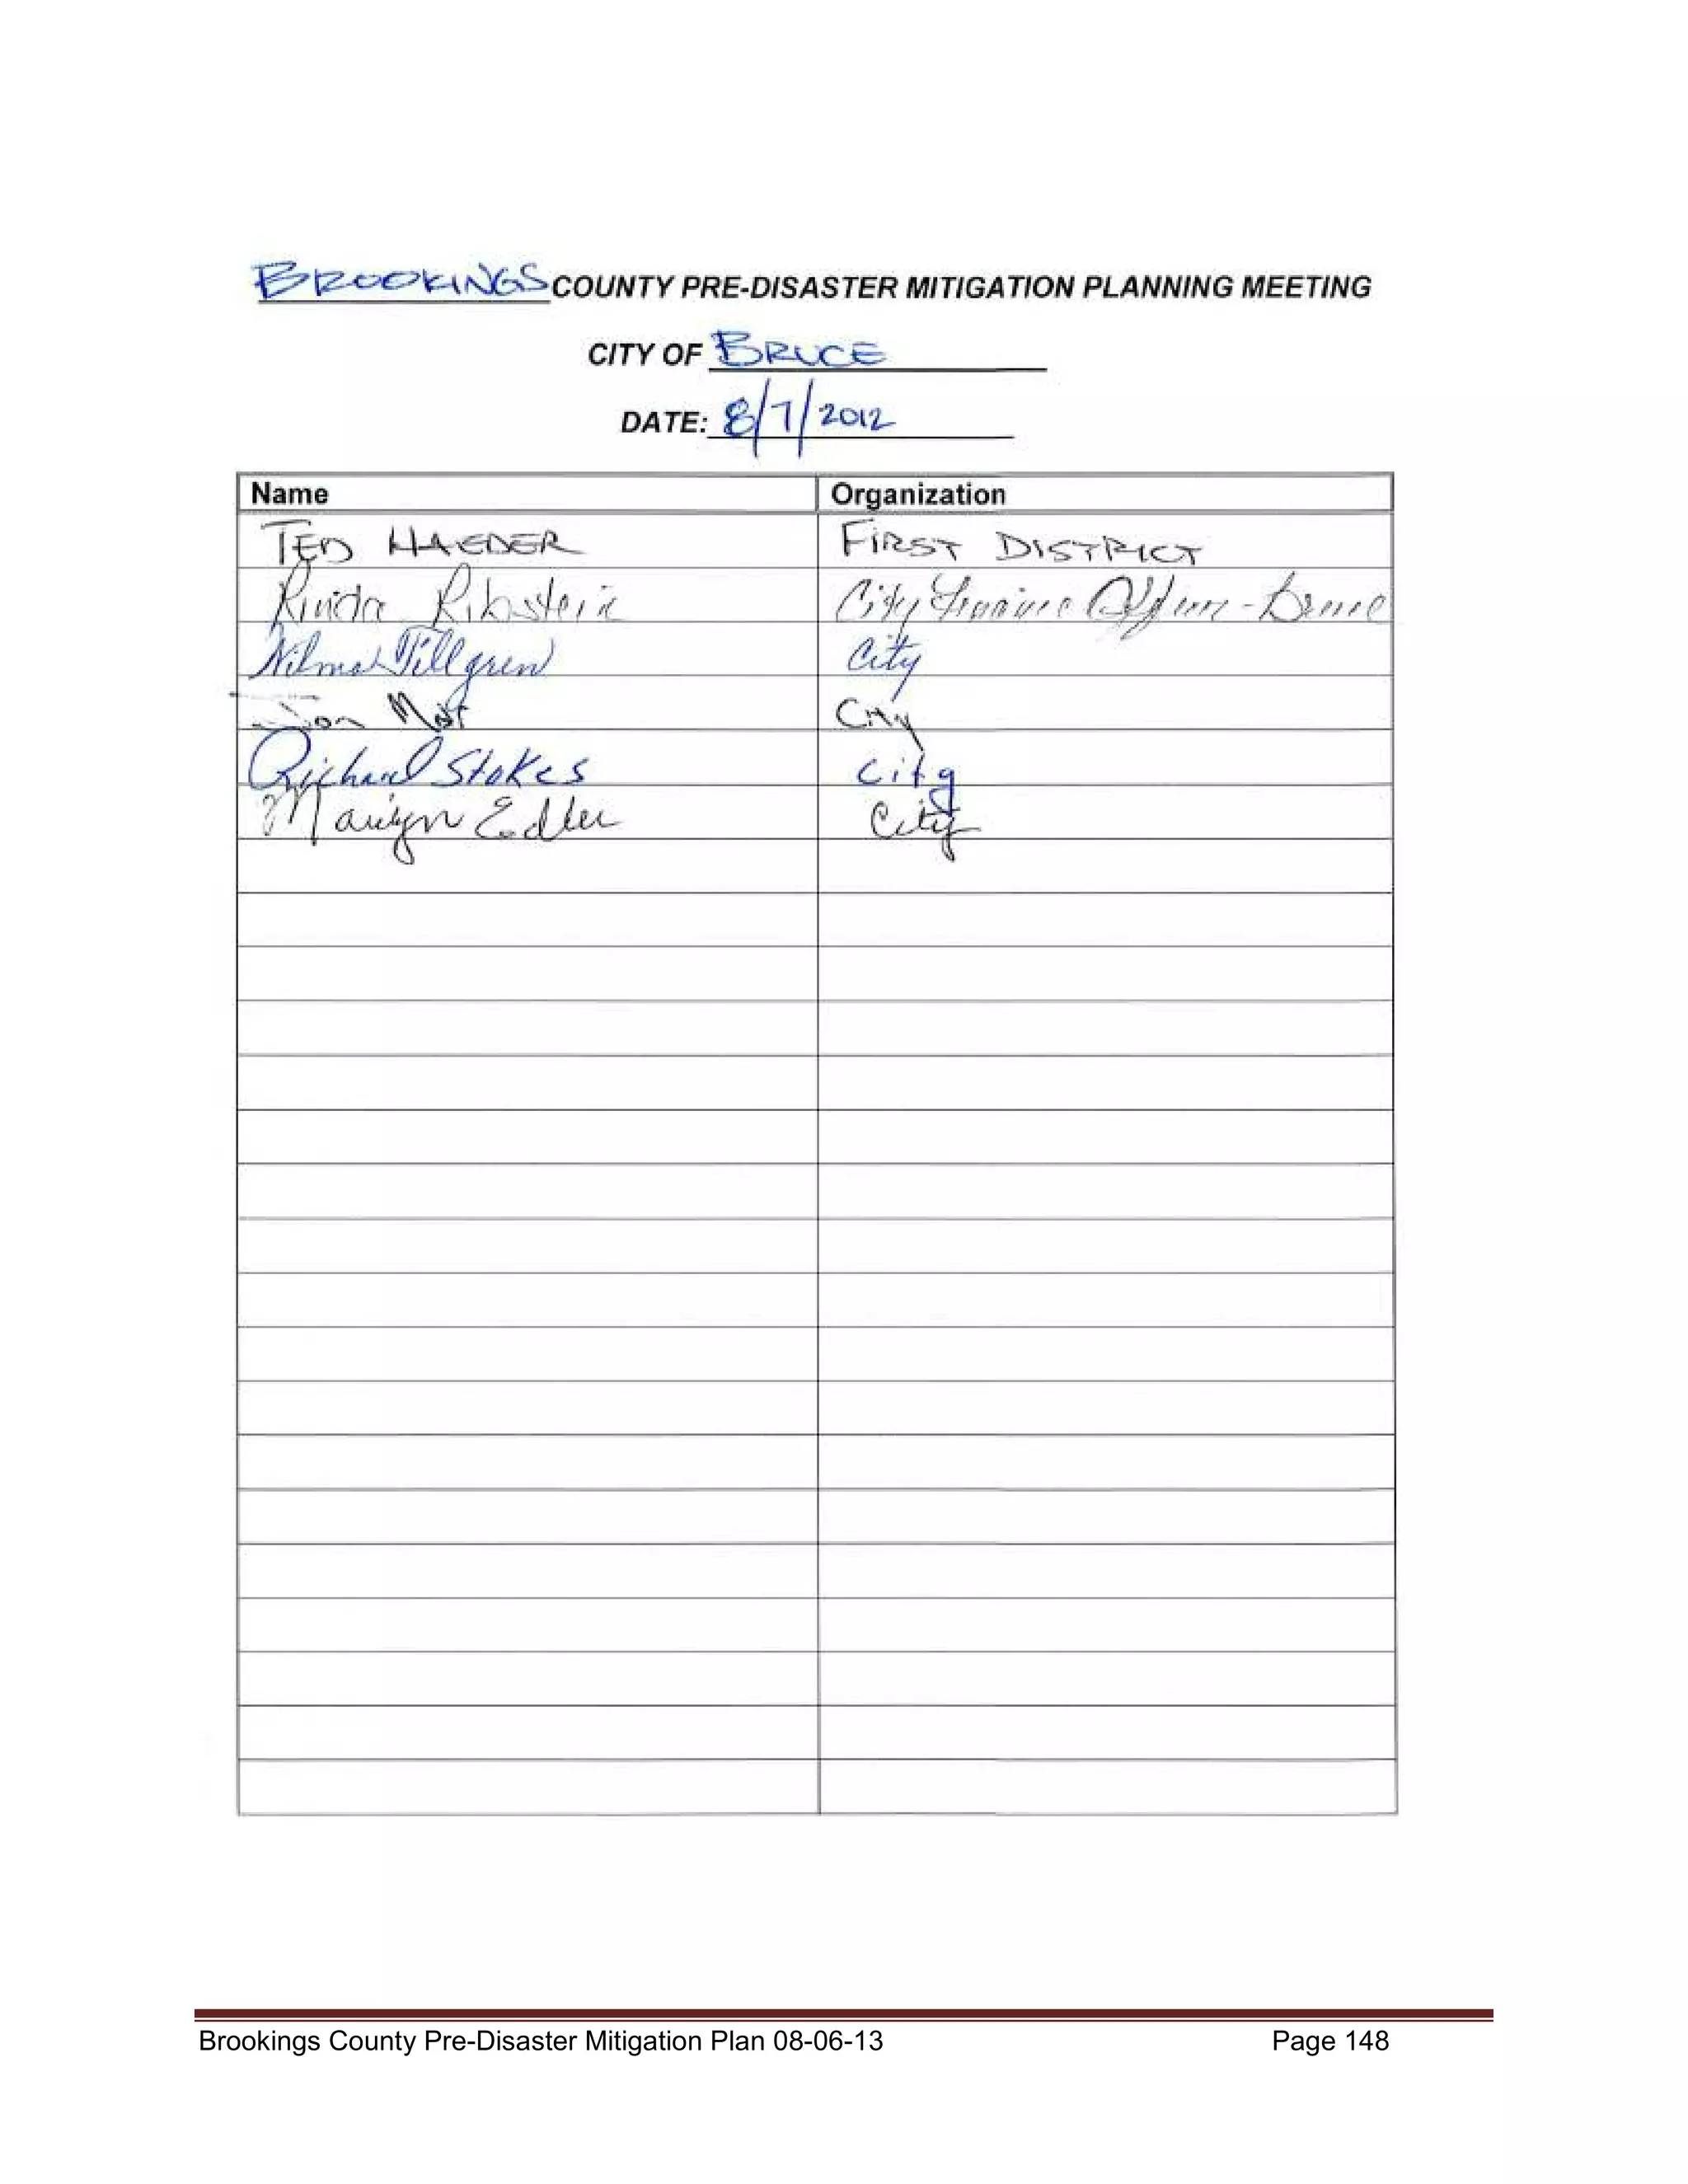 BROOKINGS COUNTY PRE-DISASTER MITIGATION PLANNING MEETING
CITY OF BRUCE
DATE: 8/7/2012
Name Organization
TED HAEDER FIRST DISTRICT
Ribstein City Finance Officer - Bruce
Wilma Tillgren City
Jon City
Richard Stokes City
Marilyn Edler City
Brookings County Pre-Disaster Mitigation Plan 08-06-13 Page 148